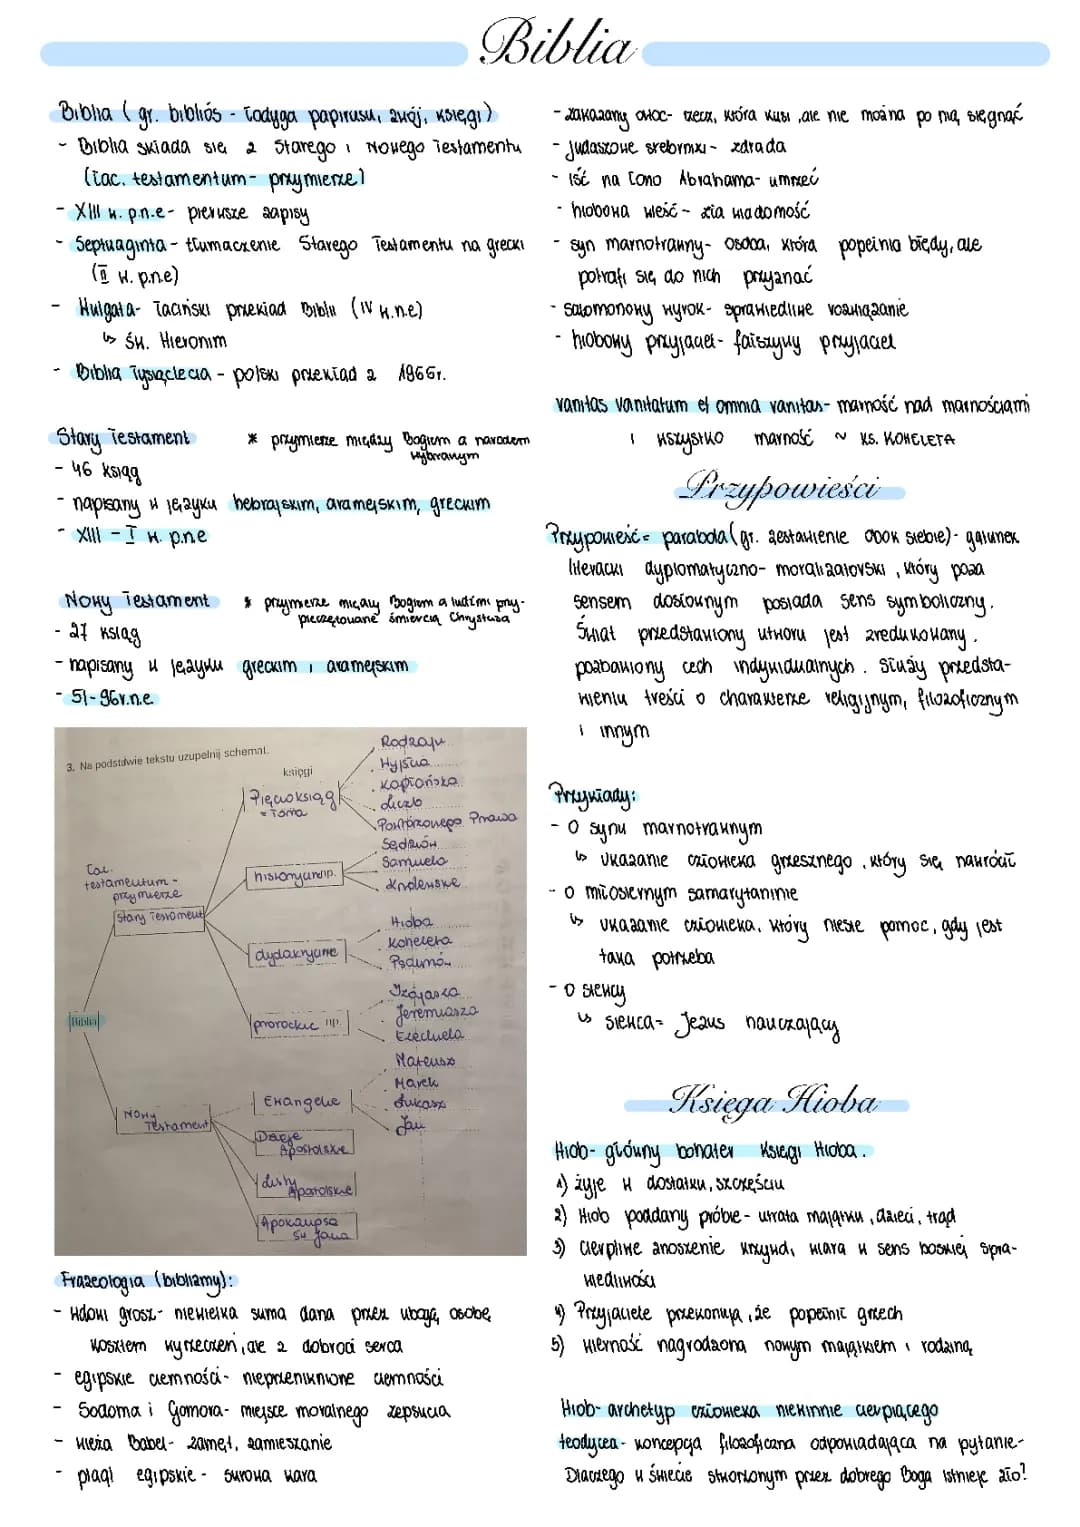 Biblia
Biblia ( gr. bibliós - łodyga papirusu, zwój, księgi)
- Biblia składa się z Starego i Nowego Testamentu
(łac. testamentum - przymierze)
- XIII w. p.n.e - pierwsze zapisy
- Septuaginta - tłumaczenie Starego Testamentu na grecki
(II w. p.n.e)
- Wulgata - łaciński przekład Biblii (IV w.n.e)
↳ św. Hieronim
- Biblia Tysiąclecia - polski przekład z 1966r.
Stary Testament * przymierze między Bogiem a narodem
wybranym
- 46 ksiąg
- napisany w języku hebrajskim, aramejskim, greckim
- XIII - I w. p.n.e
Nowy Testament * przymierze między Bogiem a ludźmi przy-
pieczętowane śmiercią Chrystusa
- 27 ksiąg
- napisany w języku greckim i aramejskim
- 51-96r.n.e
3. Na podstawie tekstu uzupełnij schemat.
księgi
Biblia
łac.
testamentum -
przymierze
Stary Testament
Pięcioksiąg
= Tora
Rodzaju
Wyjścia
Kapłańska
Liczb
Powtórzonego Prawa
historyczne np.
Sędziów
Samuela
Królewskie
dydaktyczne
Hioba
Koheleta
Psalmów
prorockie np.
Izajasza
Jeremiasza
Ezechiela
Nowy
Testament
Ewangelie
Mateusz
Marek
Łukasz
Jan
Dzieje
Apostolskie
Listy
Apostolskie
Apokalipsa
św Jana
Frazeologia (bibliizmy):
- wdowi grosz - niewielka suma dana przez ubogą osobę
kosztem wyrzeczeń, ale z dobroci serca
- egipskie ciemności - nieprzeniknione ciemności
- Sodoma i Gomora - miejsce moralnego zepsucia
- wieża Babel - zamęt, zamieszanie
- plagi egipskie - surowa kara
- zakazany owoc - rzecz, która kusi, ale nie można po nią sięgnąć
- judaszowe srebrniki - zdrada
- iść na łono Abrahama - umrzeć
- hiobowa wieść - zła wiadomość
- syn marnotrawny - osoba, która popełnia błędy, ale
potrafi się do nich przyznać
- salomonowy wyrok - sprawiedliwe rozwiązanie
- hiobowy przyjaciel - fałszywy przyjaciel
vanitas vanitatum et omnia vanitas - marność nad marnościami
i wszystko marność ~ KS. KOHELETA
Przypowieści
Przypowieść = parabola (gr. zestawienie obok siebie) - gatunek
literacki dyplomatyczno - moralizatorski, który poza
sensem dosłownym posiada sens symboliczny.
Świat przedstawiony utworu jest zredukowany.
pozbawiony cech indywidualnych. Służy przedsta-
wieniu treści o charakterze religijnym, filozoficznym
i innym
Przykłady:
- o synu marnotrawnym
↳ ukazanie człowieka grzesznego, który się nawrócił
- o miłosiernym samarytaninie
↳ ukazanie człowieka, który niesie pomoc, gdy jest
taka potrzeba
- o siewcy
↳ siewca = Jezus nauczający
Księga Hioba
Hiob - główny bohater Księgi Hioba.
1) żyje w dostatku, szczęściu
2) Hiob poddany próbie - utrata majątku, dzieci, trąd
3) Cierpliwe znoszenie krzywd, wiara w sens boskiej spra-
wiedliwości
4) Przyjaciele przekonują, że popełnił grzech
5) wierność nagrodzona nowym majątkiem i rodziną
Hiob - archetyp człowieka niewinnie cierpiącego
teodycea - koncepcja filozoficzna odpowiadająca na pytanie -
Dlaczego w świecie stworzonym przez dobrego Boga istnieje zło?